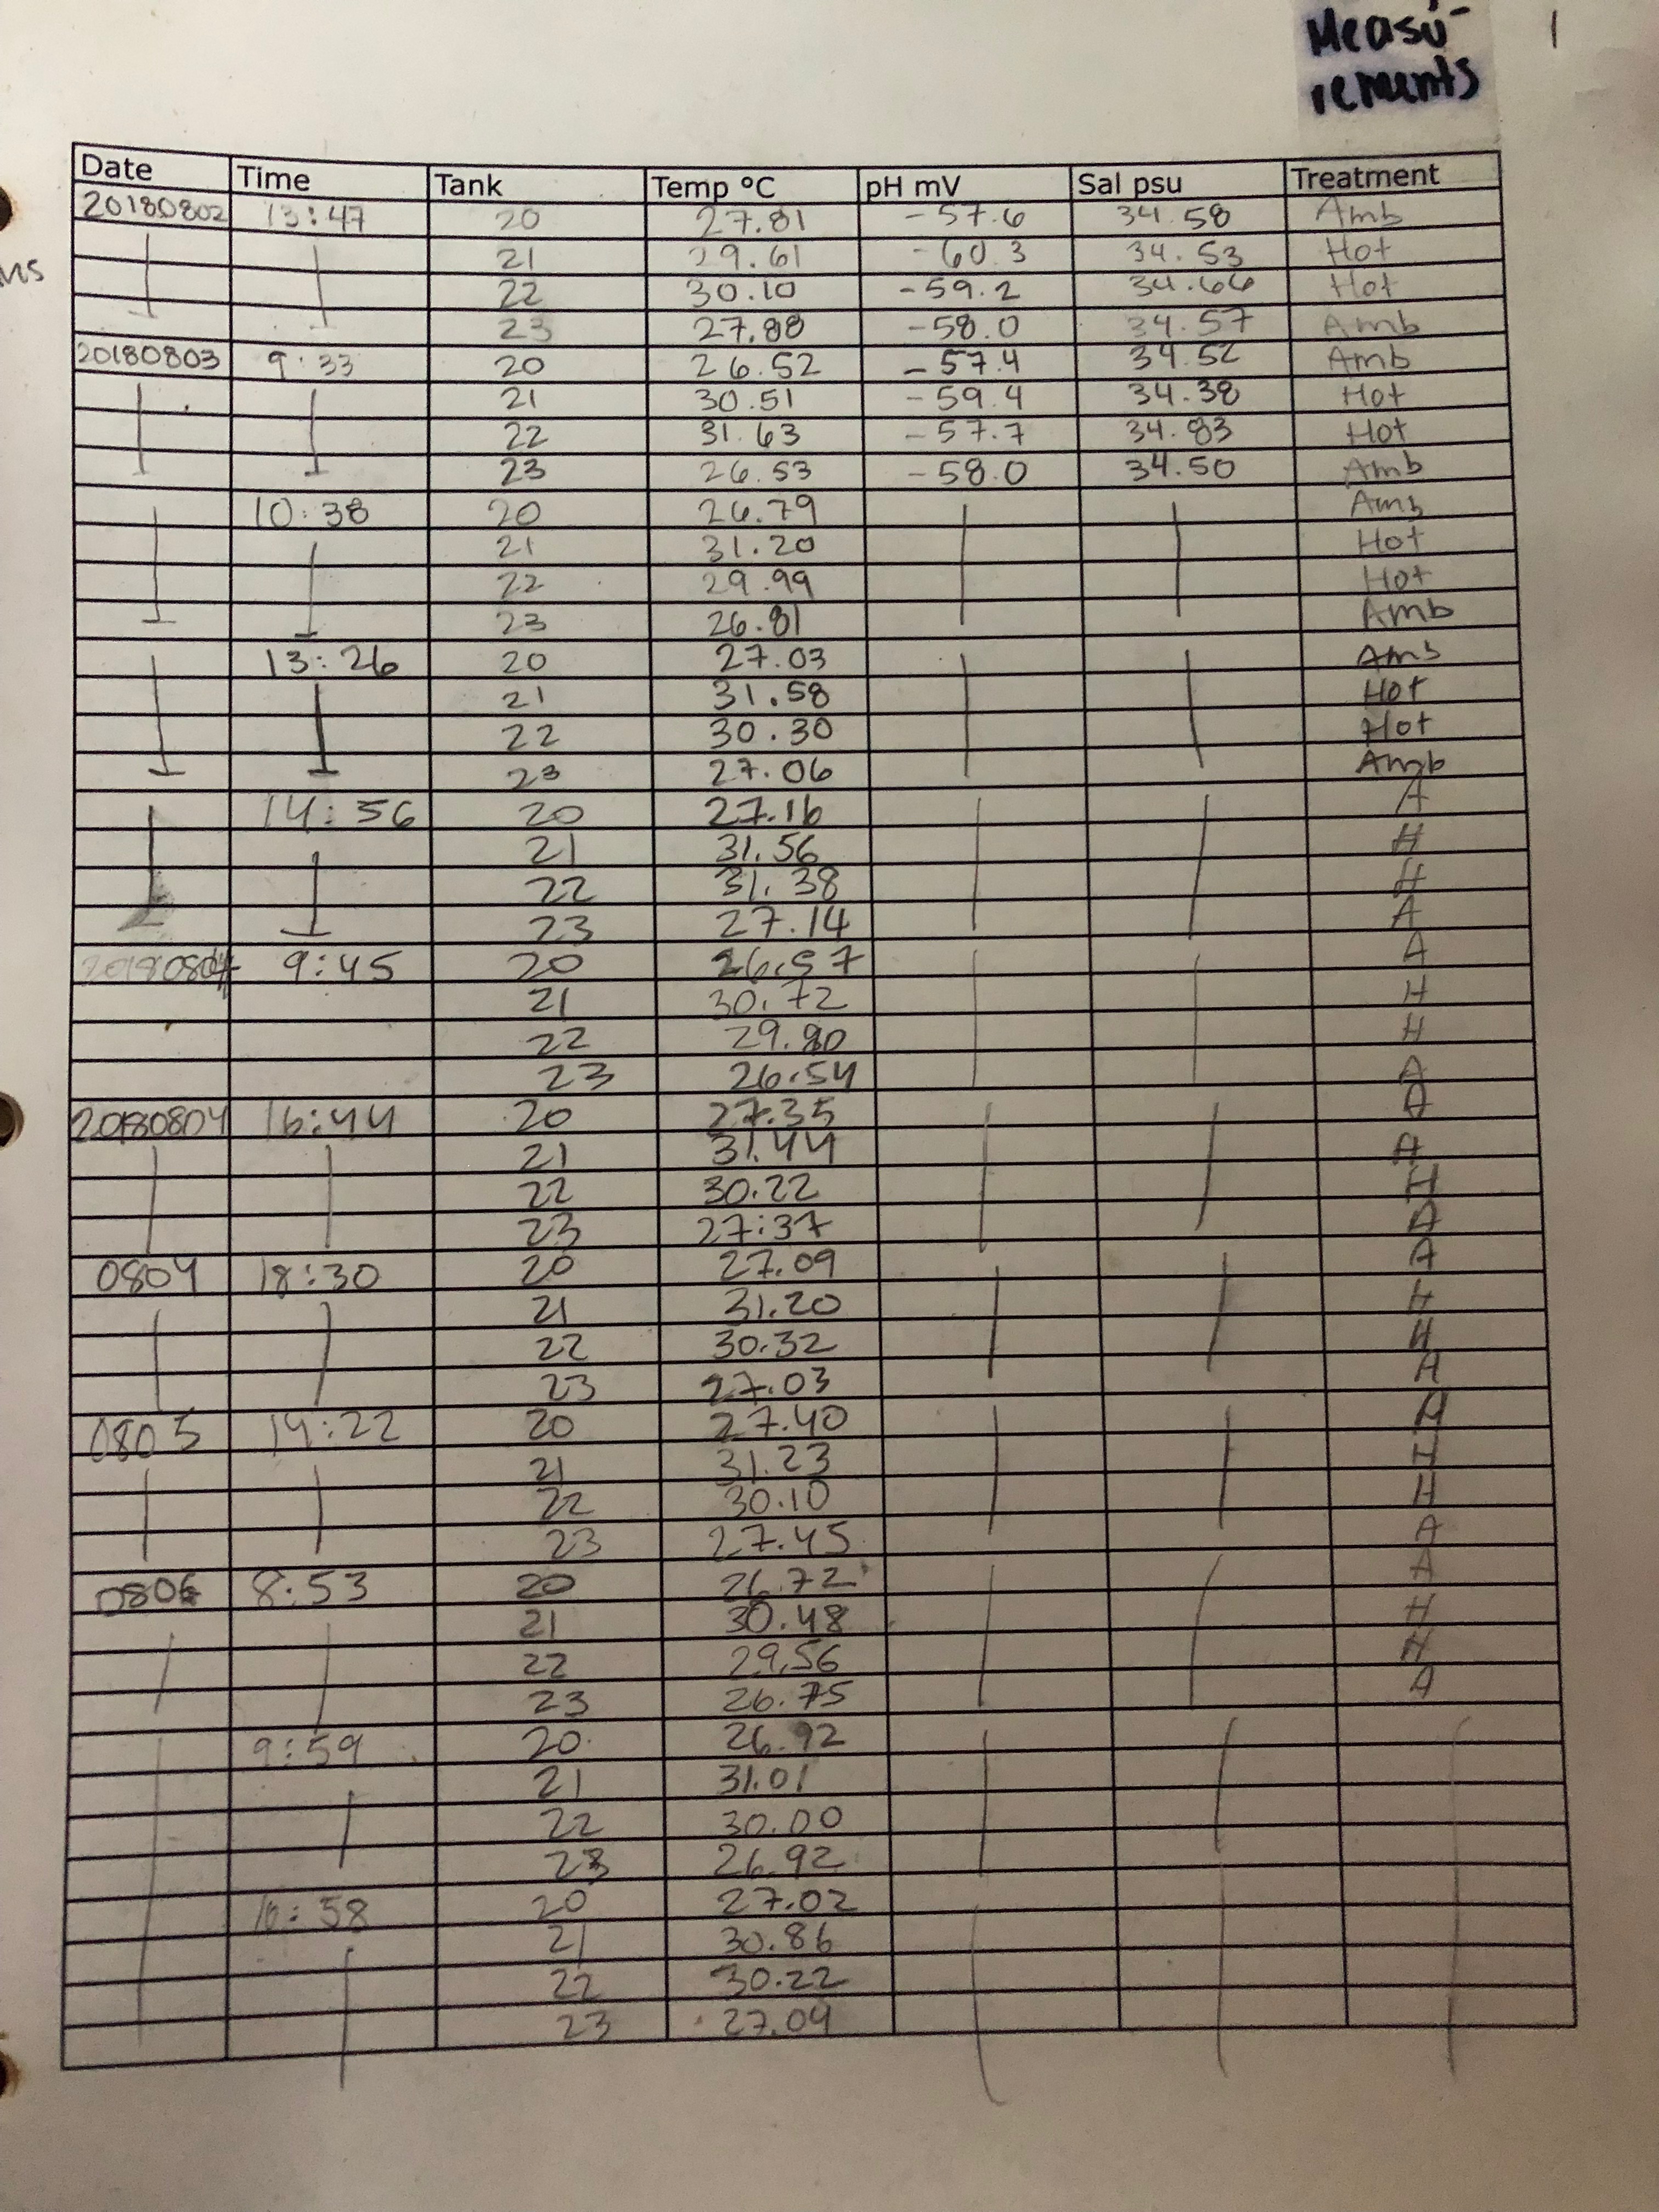 Measu-
rements
1
ns
Date Time Tank Temp ºC pH mV Sal psu Treatment
20180802 13:47 20 27.81 -57.6 34.58 Amb
21 29.61 -60.3 34.53 Hot
22 30.10 -59.2 34.66 Hot
23 27.88 -58.0 34.57 Amb
20180803 9:33 20 26.52 -57.4 34.52 Amb
21 30.51 -59.4 34.38 Hot
22 31.63 -57.7 34.83 Hot
23 26.53 -58.0 34.50 Amb
10:38 20 26.79 Amb
21 31.20 Hot
22 29.99 Hot
23 26.81 Amb
13:26 20 27.03 Amb
21 31.58 Hot
22 30.30 Hot
23 27.06 Amb
14:56 20 27.16 A
21 31.56 H
22 31.38 H
23 27.14 A
20180804 9:45 20 26.57 A
21 30.72 H
22 29.80 H
23 26.54 A
20180804 16:44 20 27.35 A
21 31.44 A
22 30.22 H
23 27:37 A
0804 18:30 20 27.09 A
21 31.20 H
22 30.32 H
23 27.03 A
0805 14:22 20 27.40 A
21 31.23 H
22 30.10 H
23 27.45 A
0806 8:53 20 26.72 A
21 30.48 H
22 29.56 H
23 26.75 A
9:59 20 26.92
21 31.01
22 30.00
23 26.92
20 27.02
21 30.86
22 30.22
23 27.04